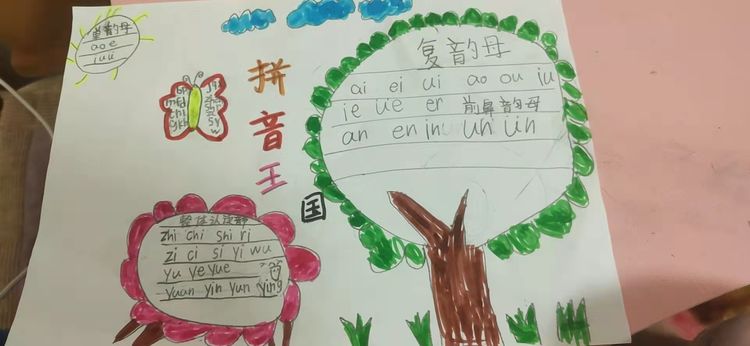 单韵母
a o e
i u ü
拼音王国
复韵母
ai ei ui ao ou iu
ie üe er 前鼻韵母
an en in un ün
整体认读音
zhi chi shi ri
zi ci si yi wu
yu ye yue
yuan yin yun ying